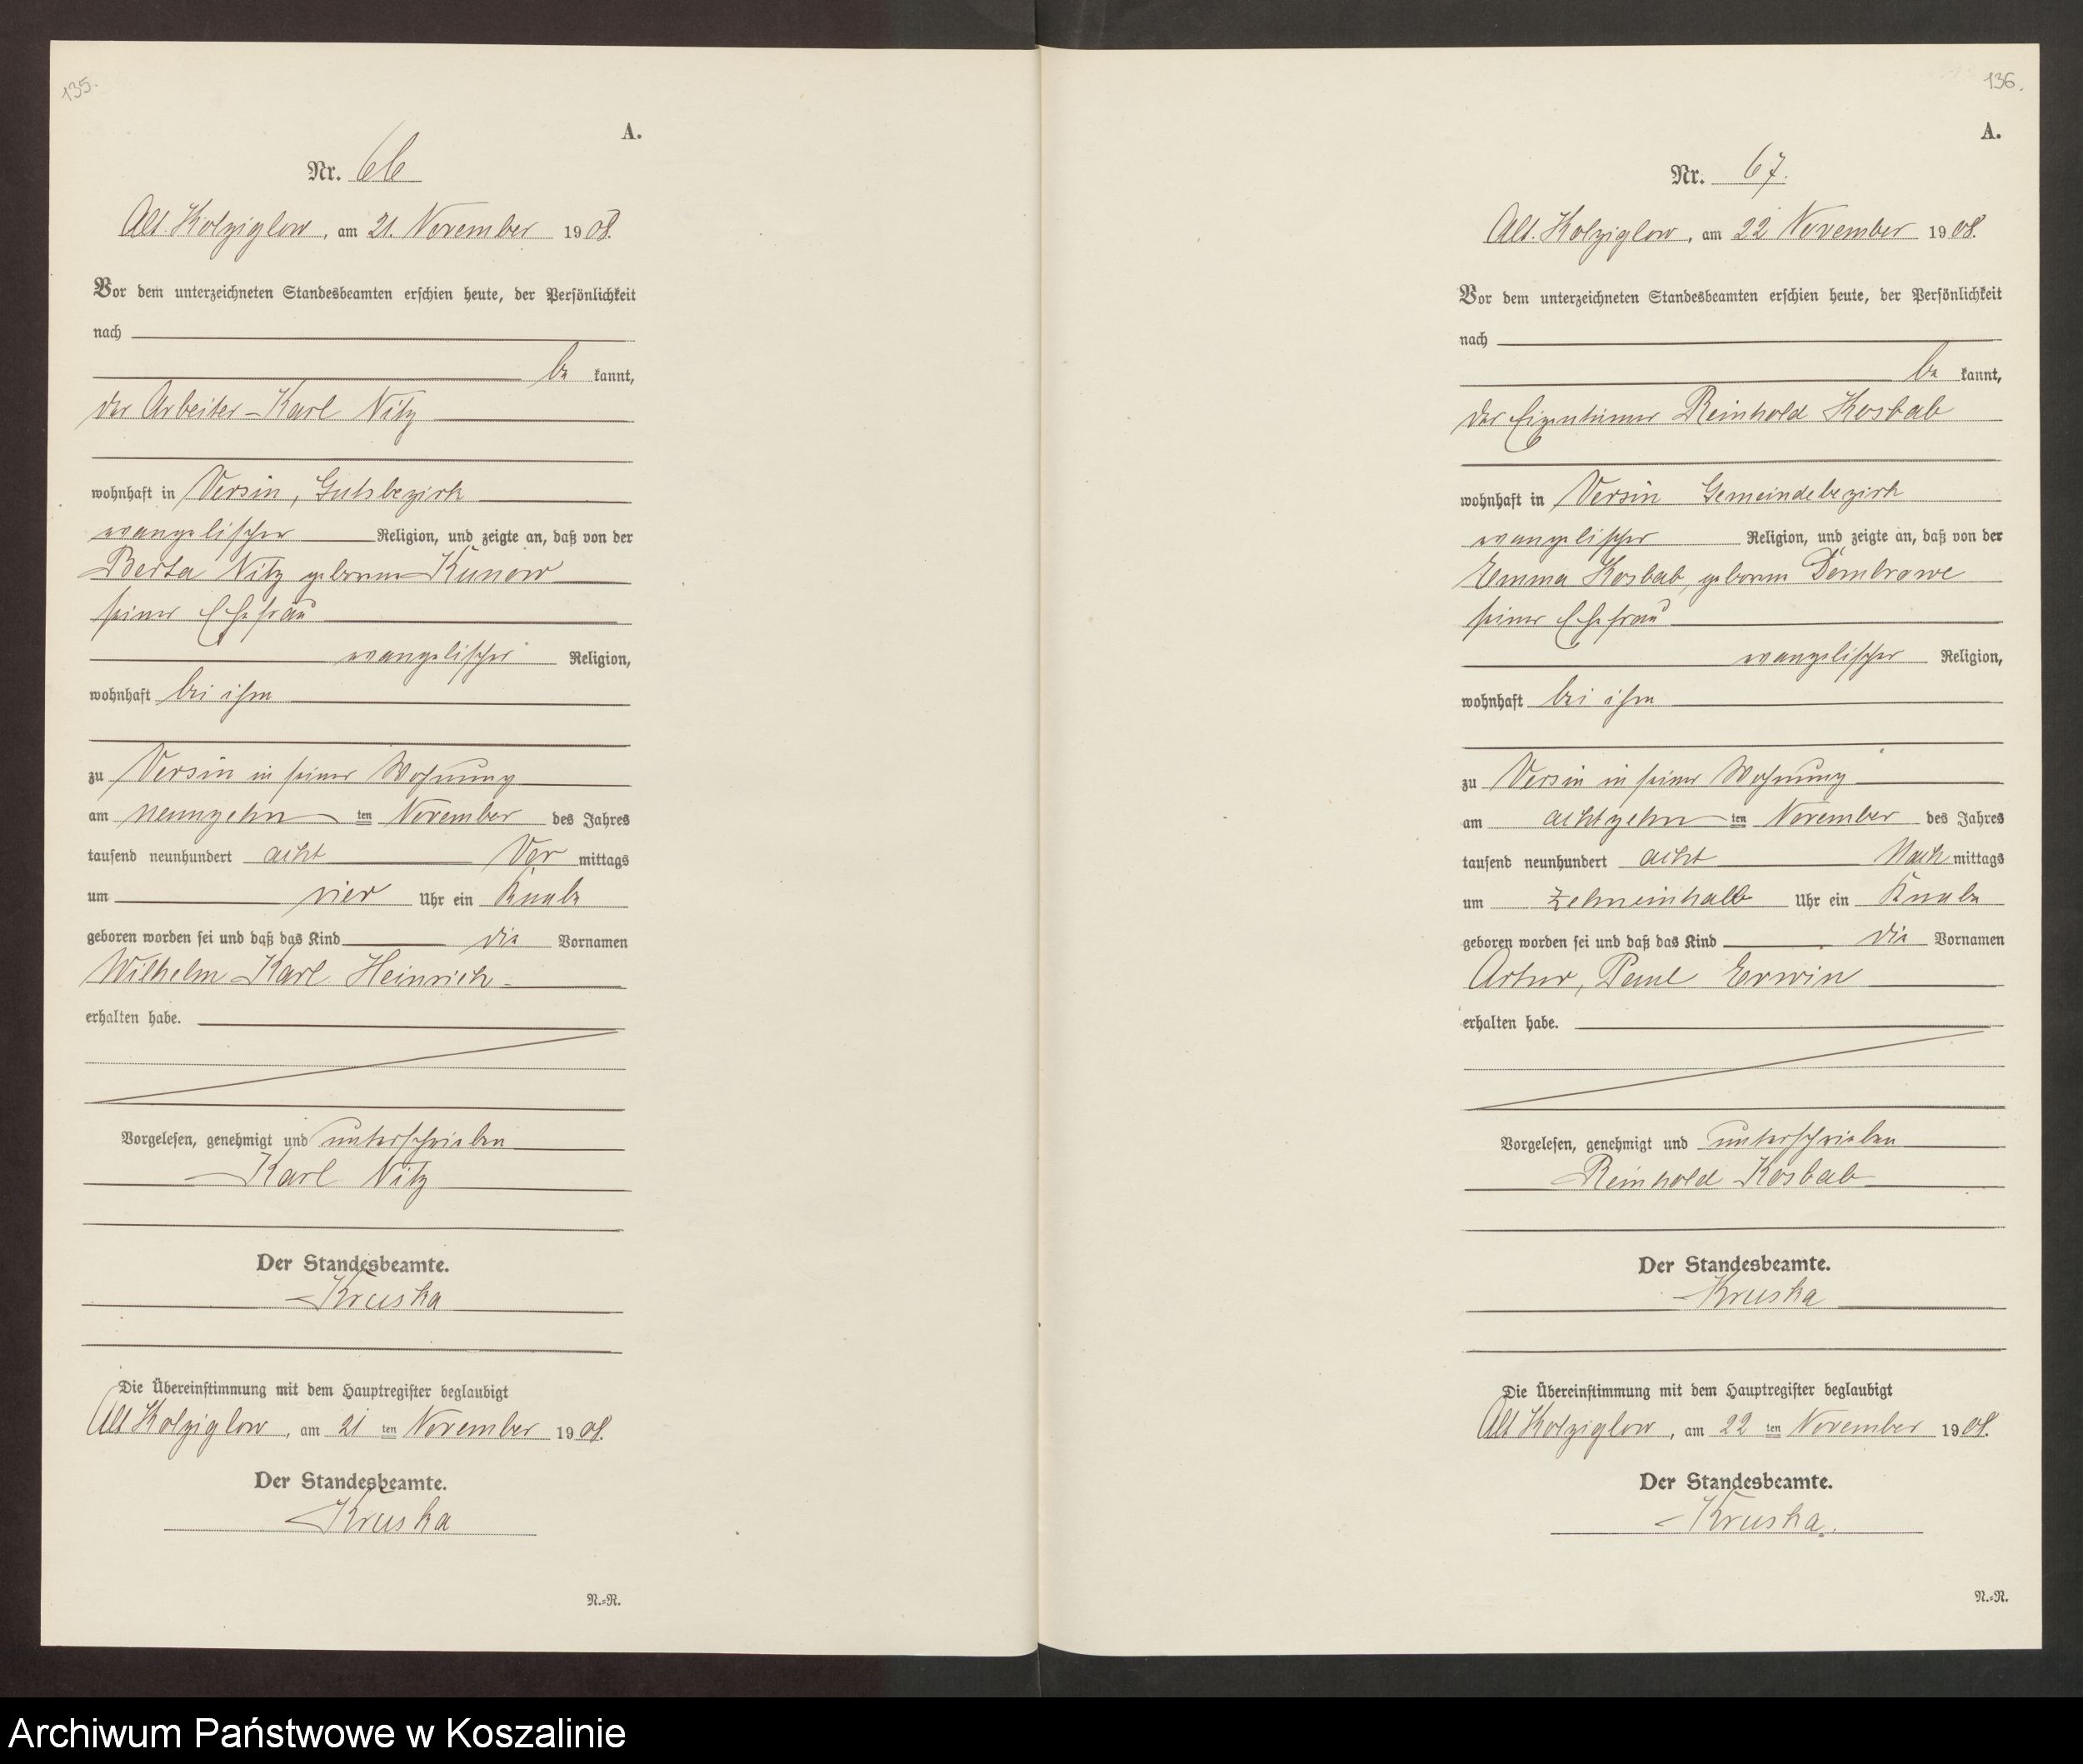 135.
A.
Nr. 66
Alt. Kolziglow, am 21. November 1908.
Vor dem unterzeichneten Standesbeamten erschien heute, der Persönlichkeit
nach
be kannt,
der Arbeiter Karl Nitz
wohnhaft in Versin, Gutsbezirk
evangelischer Religion, und zeigte an, daß von der
Berta Nitz geborene Kunow
seiner Ehefrau
evangelischer Religion,
wohnhaft bei ihm
zu Versin in seiner Wohnung
am neunzehn ten November des Jahres
tausend neunhundert acht Vor mittags
um vier Uhr ein Knabe
geboren worden sei und daß das Kind die Vornamen
Wilhelm Karl Heinrich
erhalten habe.
Vorgelesen, genehmigt und unterschrieben
Karl Nitz
Der Standesbeamte.
Kruska
Die Übereinstimmung mit dem Hauptregister beglaubigt
Alt Kolziglow, am 21 ten November 1908.
Der Standesbeamte.
Kruska
N.=R.
136.
A.
Nr. 67.
Alt. Kolziglow, am 22 November 1908.
Vor dem unterzeichneten Standesbeamten erschien heute, der Persönlichkeit
nach
be kannt,
der Eigentümer Reinhold Kosbab
wohnhaft in Versin Gemeindebezirk
evangelischer Religion, und zeigte an, daß von der
Emma Kosbab, geborene Dombrowe
seiner Ehefrau
evangelischer Religion,
wohnhaft bei ihm
zu Versin in seiner Wohnung
am achtzehn ten November des Jahres
tausend neunhundert acht Nach mittags
um zehneinhalb Uhr ein Knabe
geboren worden sei und daß das Kind die Vornamen
Artur, Paul Erwin
erhalten habe.
Vorgelesen, genehmigt und unterschrieben
Reinhold Kosbab
Der Standesbeamte.
Kruska
Die Übereinstimmung mit dem Hauptregister beglaubigt
Alt Kolziglow, am 22 ten November 1908.
Der Standesbeamte.
Kruska.
N.=R.
Archiwum Państwowe w Koszalinie